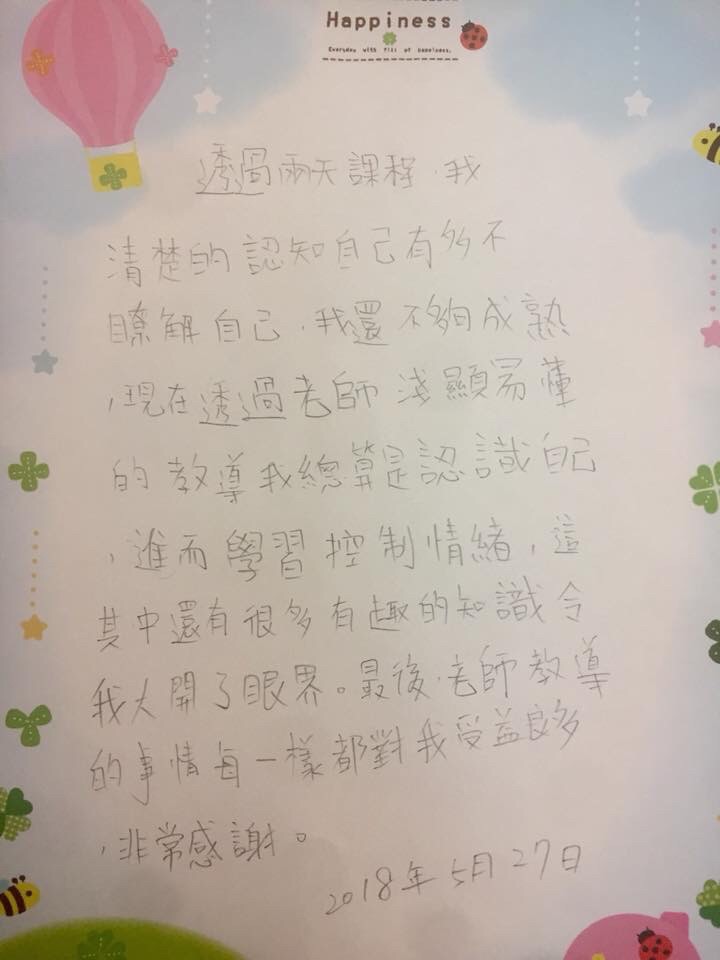 Happiness
Everyday with fill of happiness.
透過兩天課程，我
清楚的認知自己有多不
瞭解自己，我還不夠成熟
，現在透過老師淺顯易懂
的教導我總算是認識自己
，進而學習控制情緒，這
其中還有很多有趣的知識令
我大開了眼界。最後，老師教導
的事情每一樣都對我受益良多
，非常感謝。
2018年5月27日